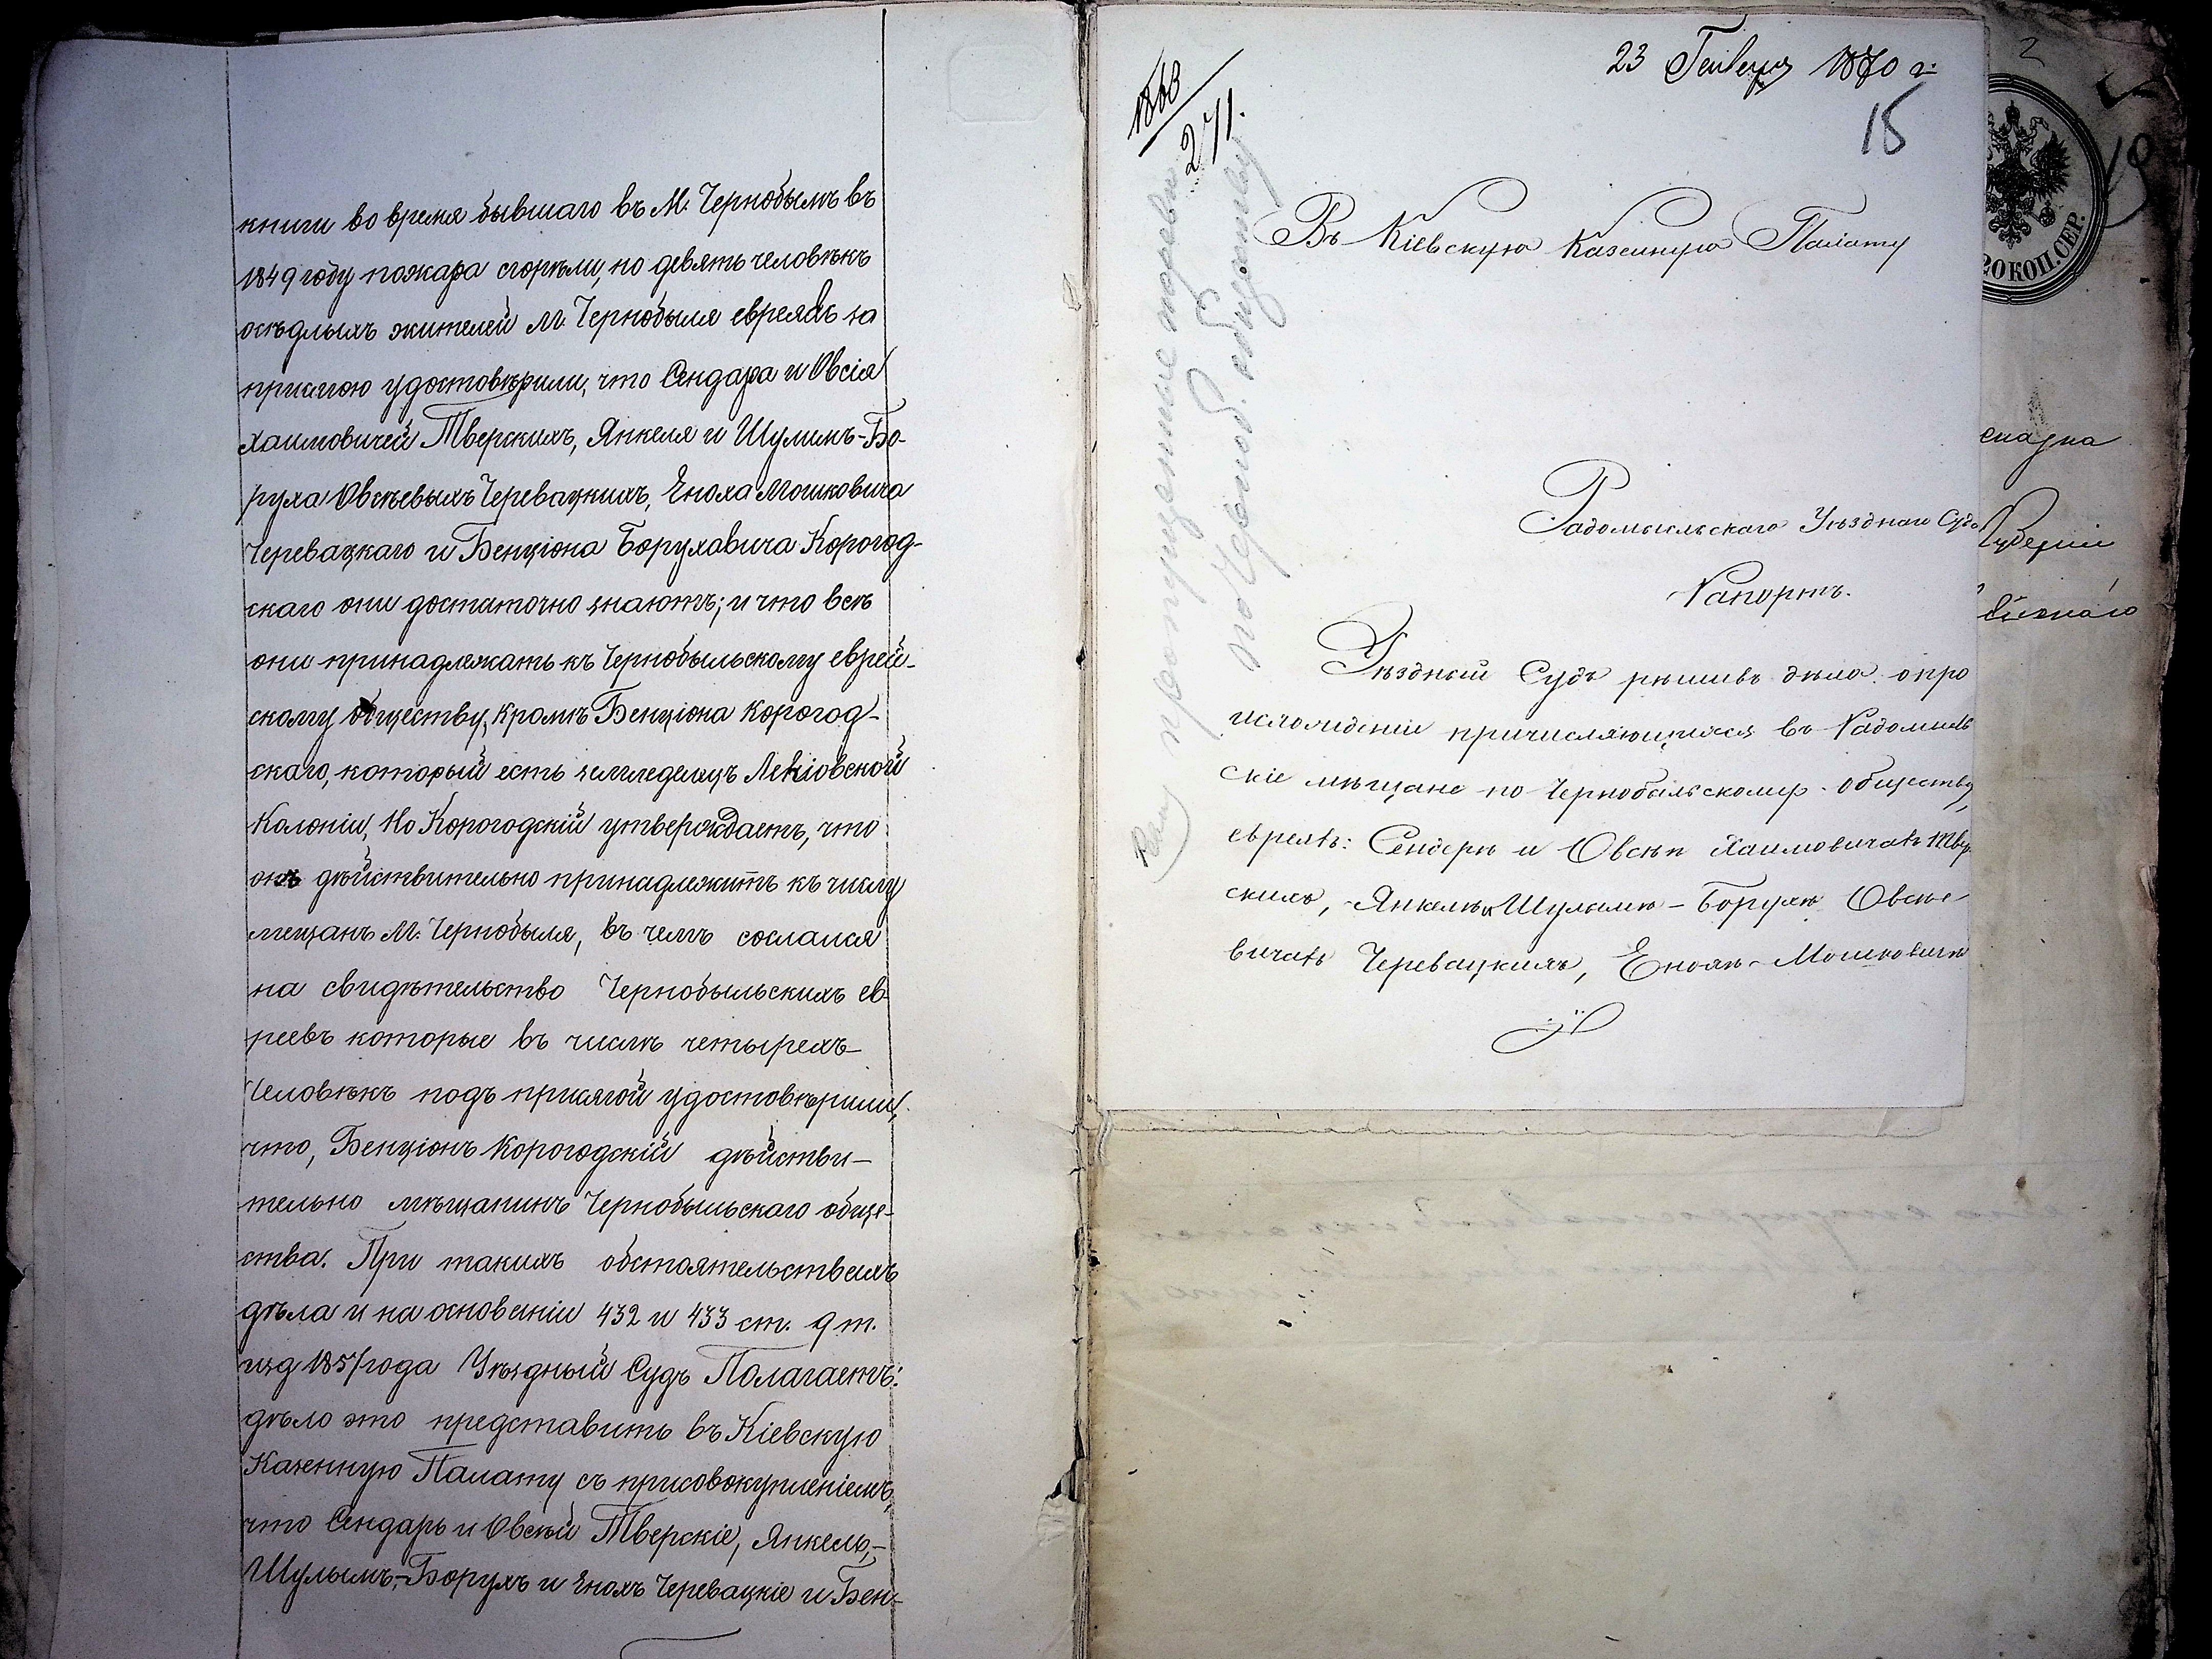 книги во время бывшаго въ М. Чернобылѣ въ
1849 году пожара сгорѣли, но девять человѣкъ
осѣдлыхъ жителей М. Чернобыля евреевъ за
присягою удостовѣрили, что Сендара и Овсія
Хаимовичей Тверскихъ, Янкеля и Шулимъ-Бо-
руха Овсѣевыхъ Черевацкихъ, Еноха Мошковича
Черевацкаго и Бенціона Боруховича Корогод-
скаго они достаточно знаютъ; и что всѣ
они принадлежатъ къ Чернобыльскому еврей-
скому обществу, кромѣ Бенціона Корогод-
скаго, который есть земледелецъ
Колоніи, Но Корогодскій утверждаетъ, что
онъ дѣйствительно принадлежитъ къ числу
мещанъ М. Чернобыля, въ чемъ сослался
на свидѣтельство Чернобыльскихъ ев-
реевъ которые въ числѣ четырехъ
Человѣкъ подъ присягой удостовѣрили,
что, Бенціонъ Корогодскій дѣйстви-
тельно мѣщанинъ Чернобыльскаго обще-
ства. При такихъ обстоятельствахъ
дѣла и на основаніи 432 и 433 ст. 9 т.
изд 1857 года Уѣздный Судъ Полагаетъ:
дѣло это представить въ Кіевскую
Казенную Палату съ присовокупленіемъ,
что Сендарь и Овсѣй Тверскіе, Янкель,-
Шулымъ,-Борухъ и Енохъ Черевацкіе и Бен-
23 Генваря 1870 г.
15
271.
Въ Кіевскую Казенную Палату
Радомысльскаго Уѣзднаго Суда
Рапортъ.
Уѣздный Судъ рѣшивъ дѣло о про
исхожденіи причисляющихся въ Радомысль
скіе мѣщане по Чернобыльскому обществу
евреевъ: Сендерѣ и Овсѣѣ Хаимовичахъ Твер
скихъ, Янкелѣ и Шулымѣ-Борухѣ Овсѣе
вичахъ Черевацкихъ, Енохѣ Мошковичѣ
20 КОП. СЕР.
Губерніи